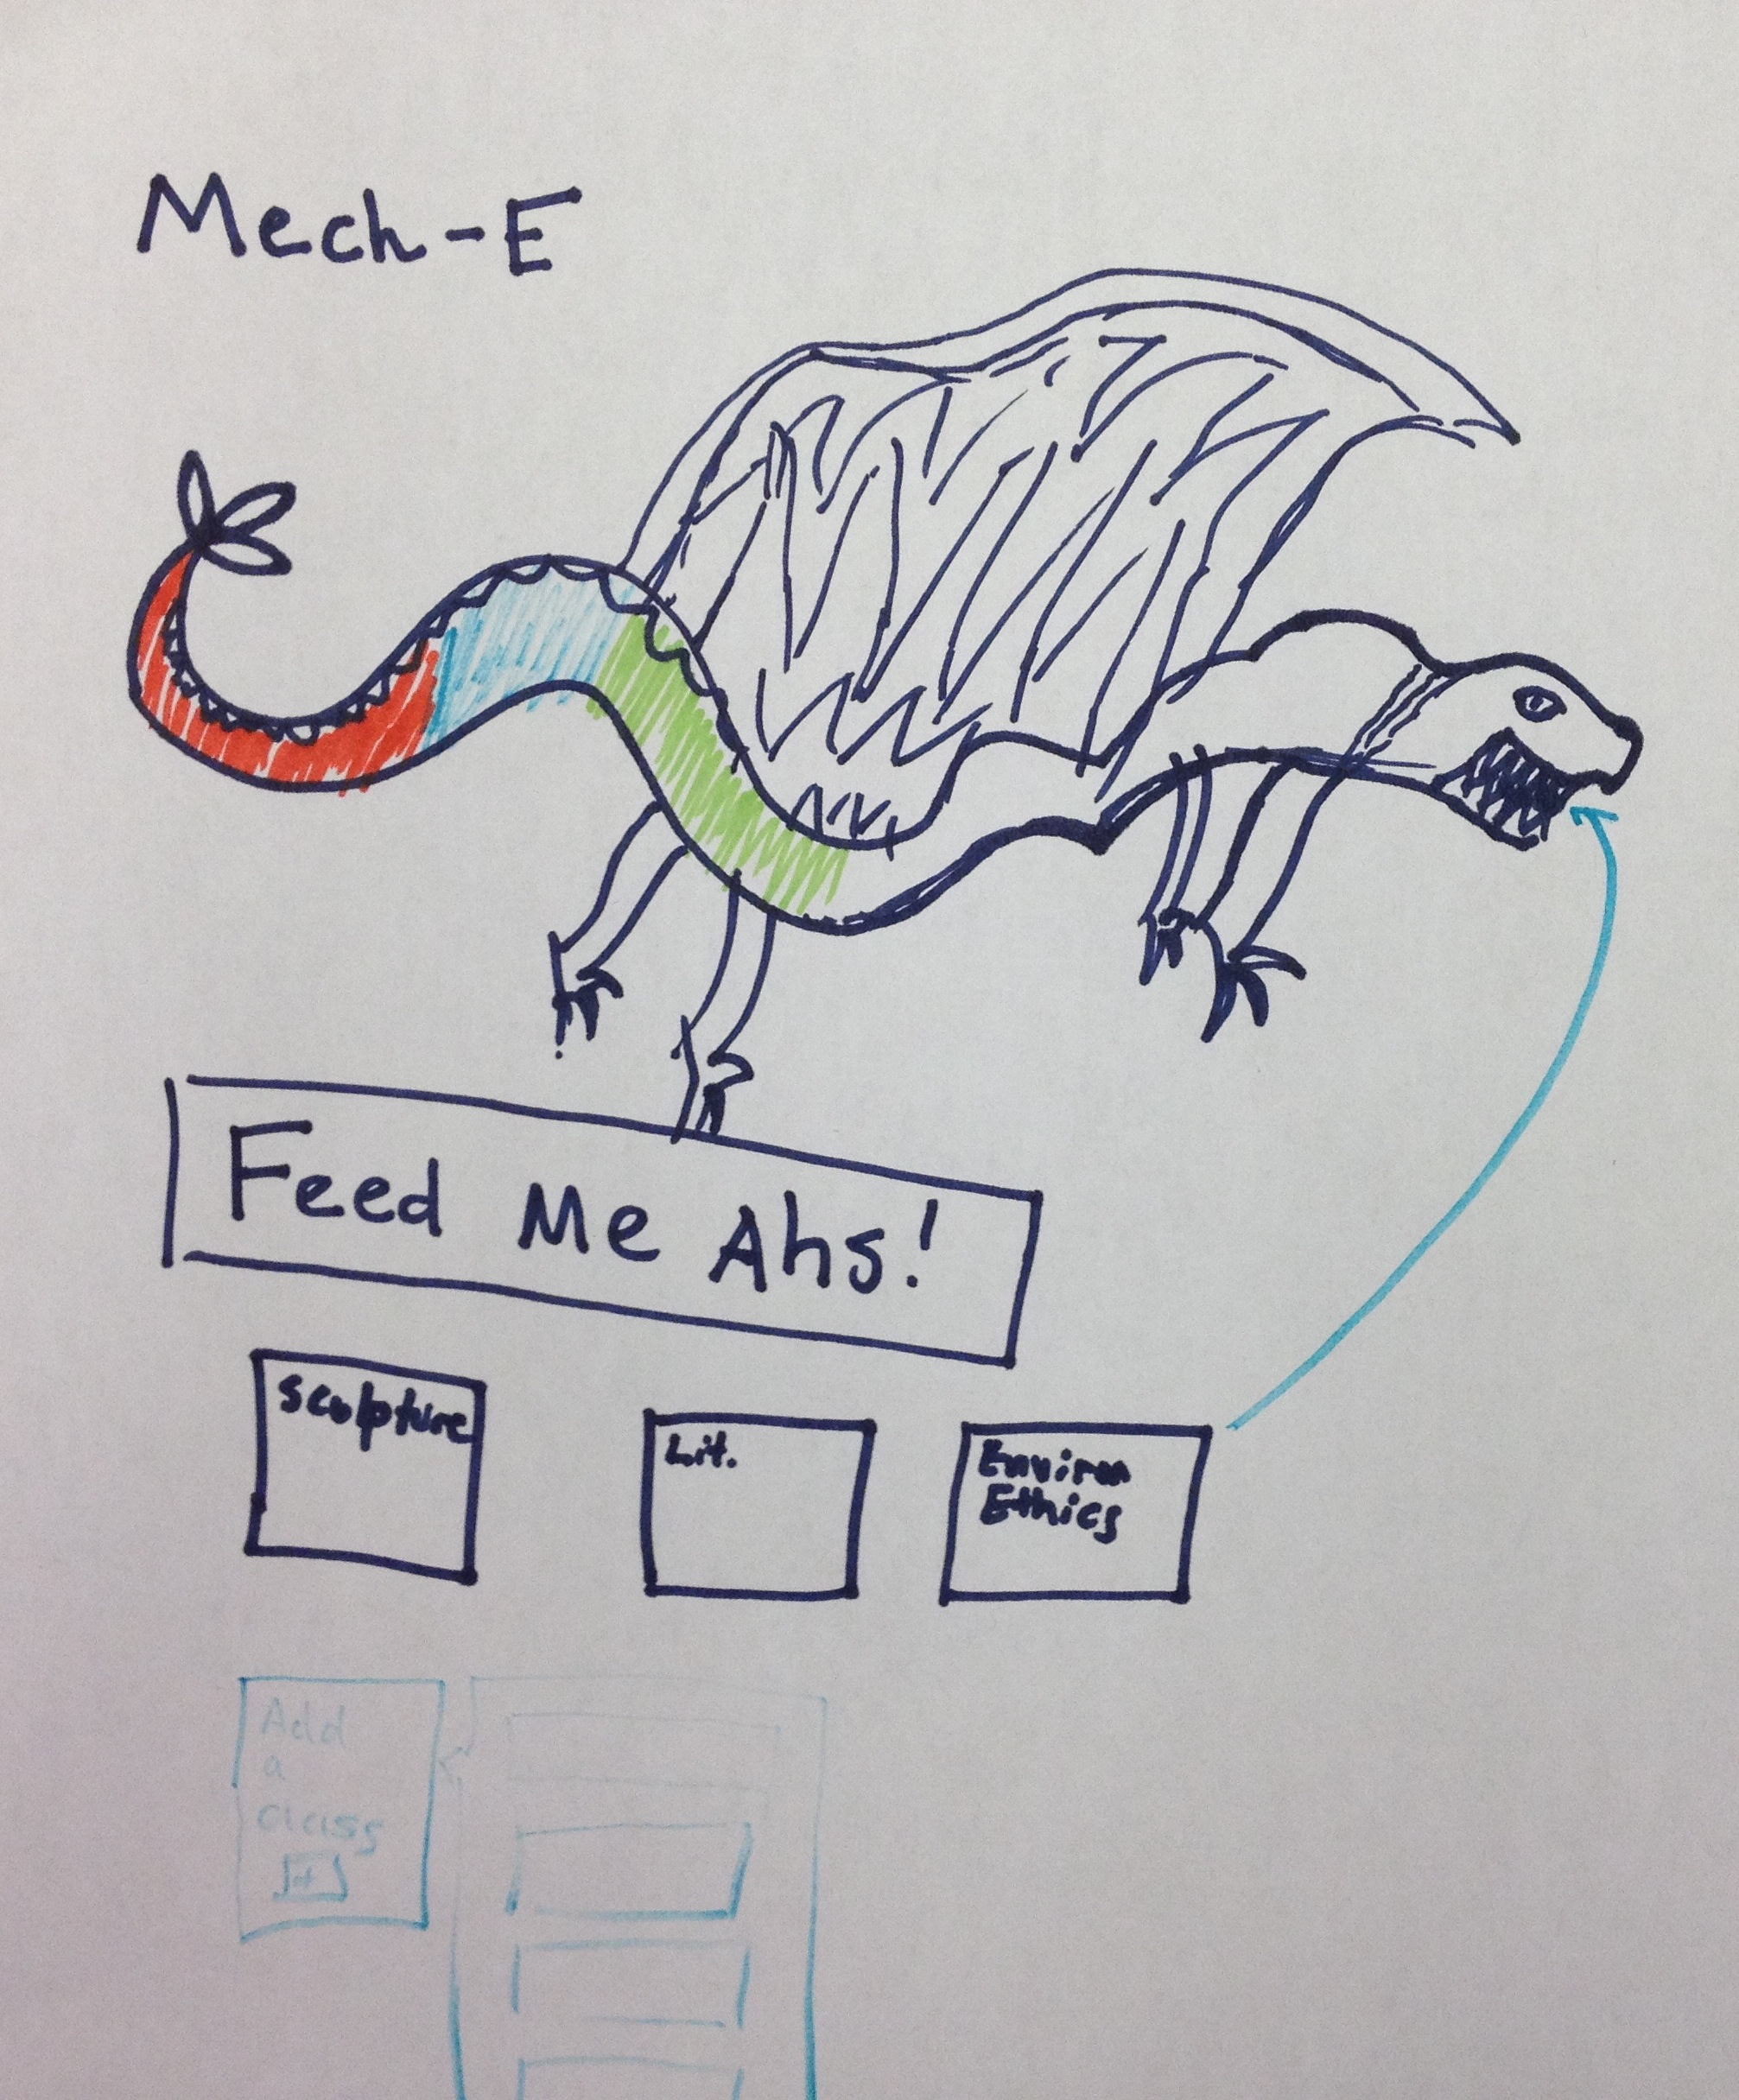 Mech-E
Feed Me Ahs!
Sculpture
Lit.
Environ
Ethics
Add
a
class
+